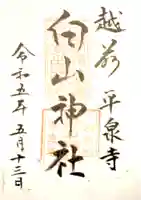 越前 平泉寺
白山神社
令和五年 五月十三日